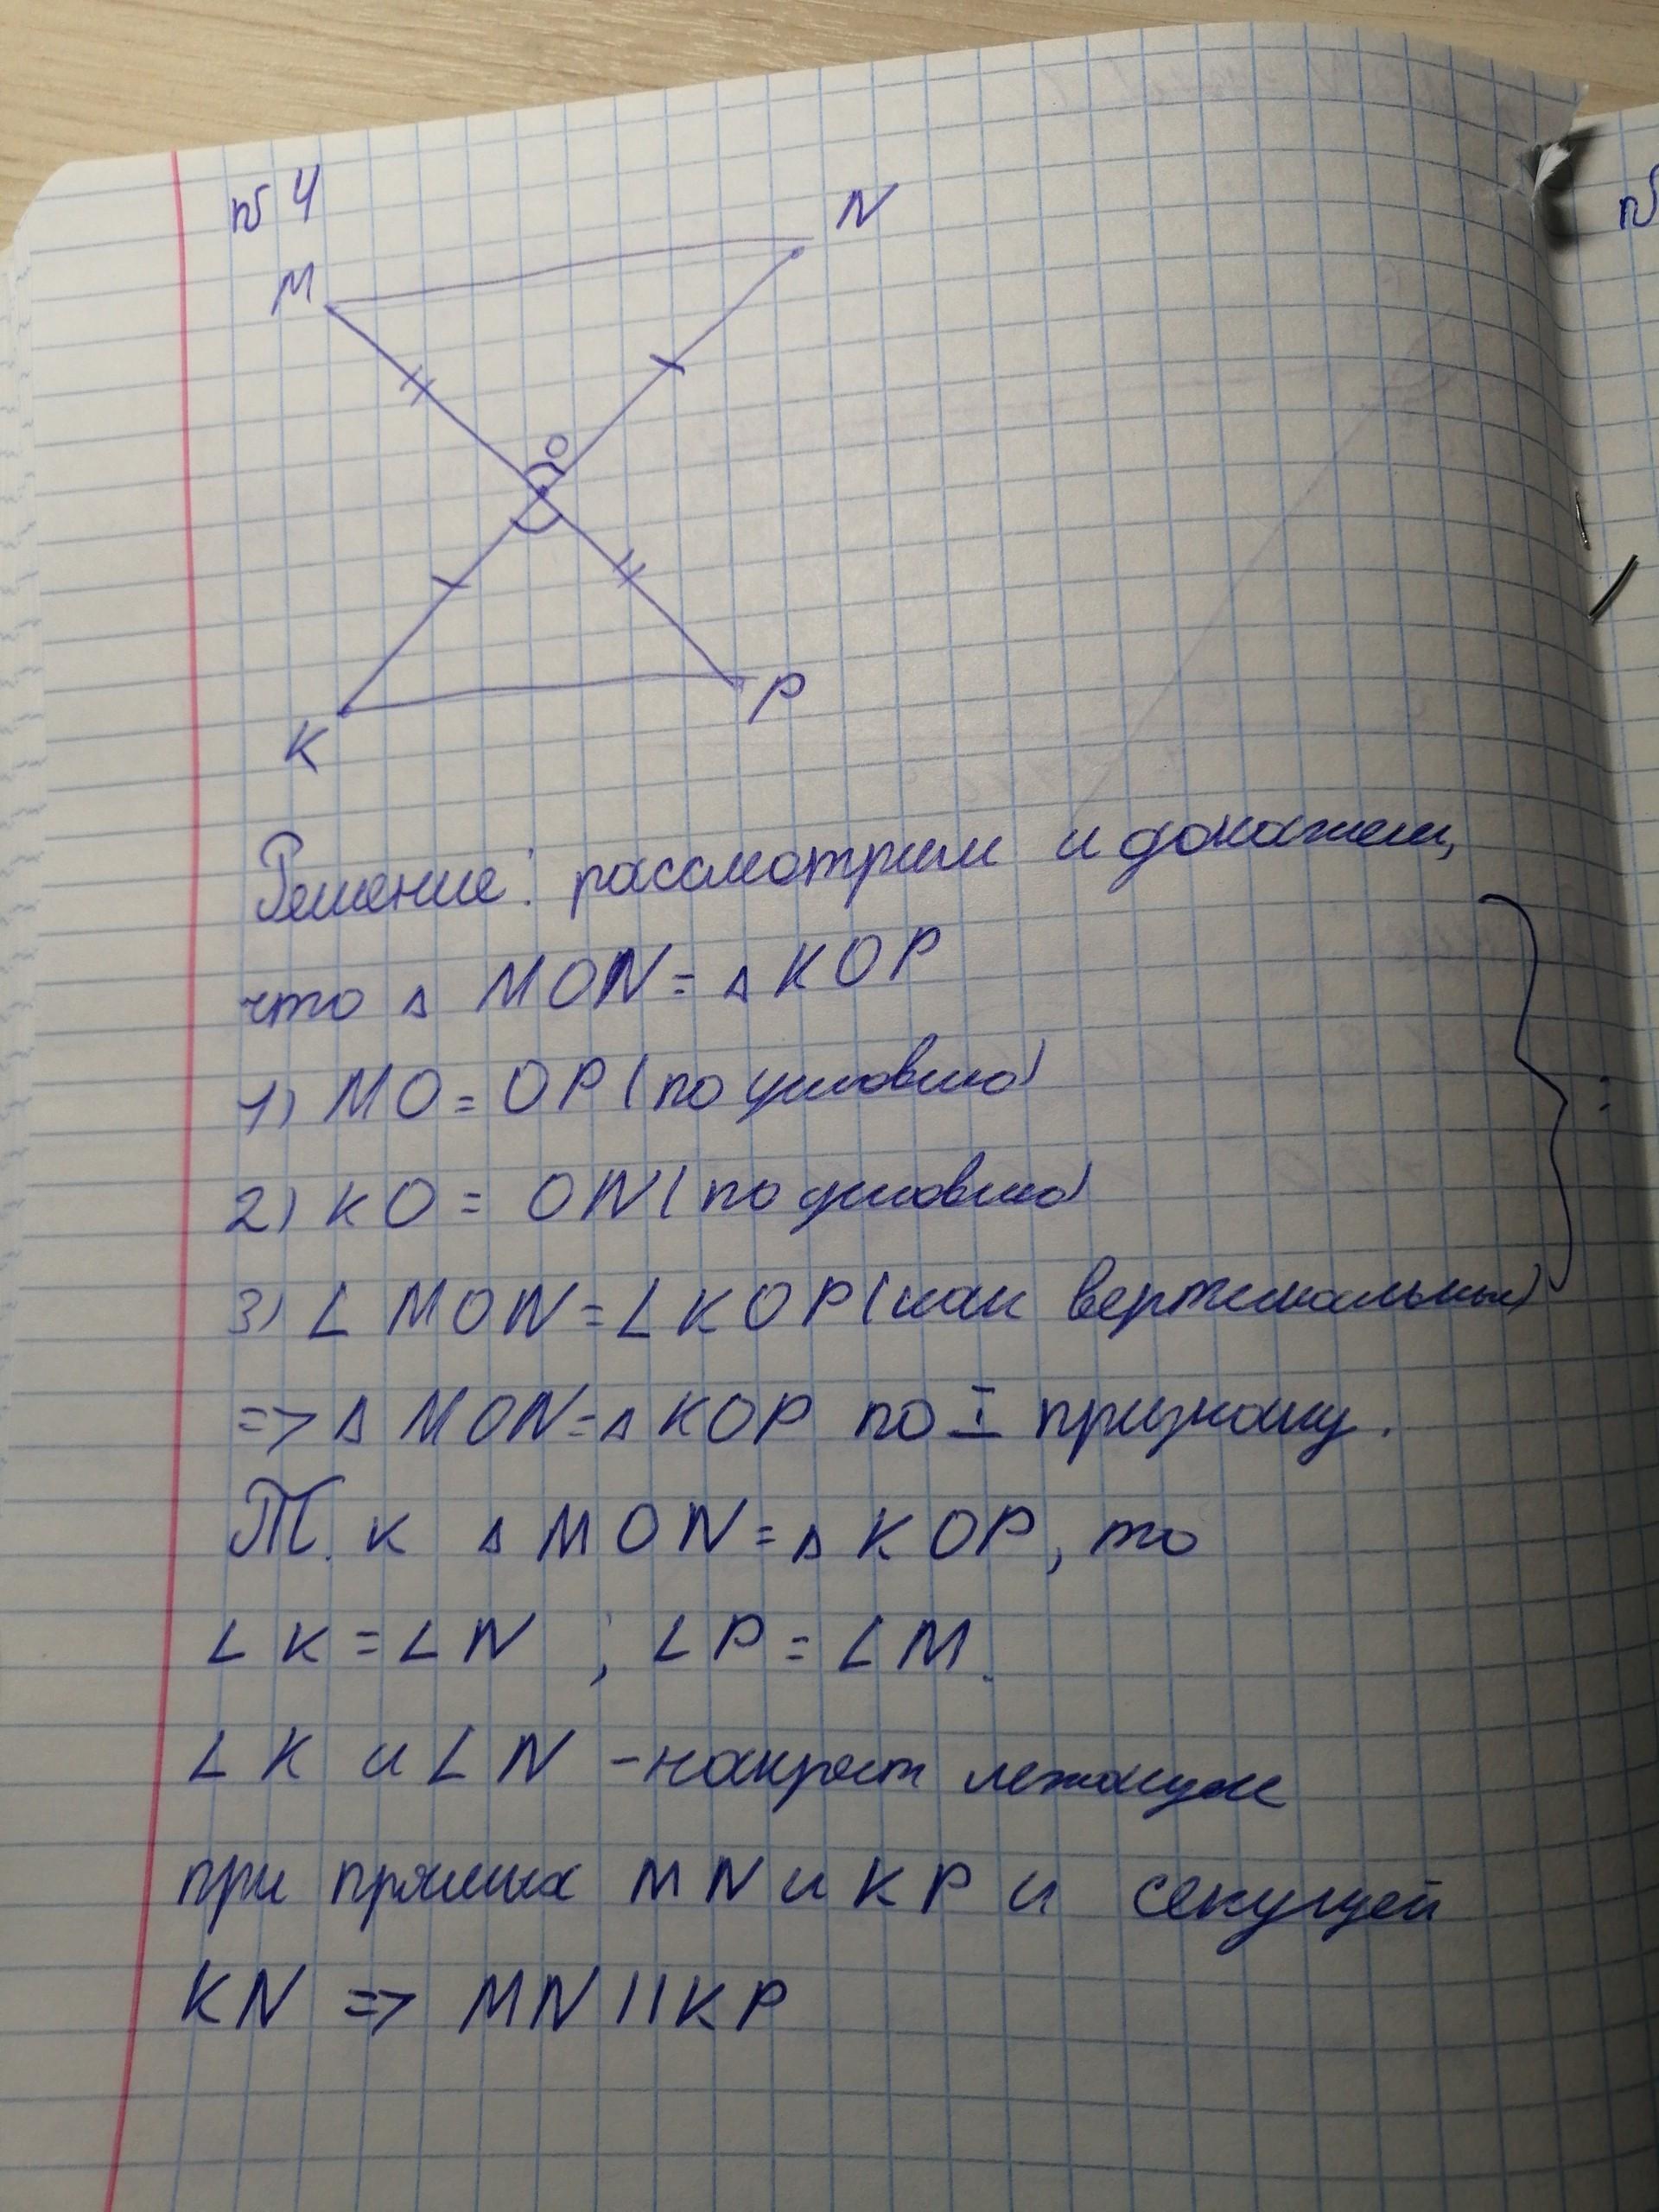 №4
M
N
O
K
P
Решение: рассмотрим и докажем,
что △ MON = △ KOP
1) MO = OP (по условию)
2) KO = ON (по условию)
3) ∠ MON = ∠ KOP (как вертикальные)
=> △ MON = △ KOP по I признаку.
Т.к △ MON = △ KOP, то
∠ K = ∠ N ; ∠ P = ∠ M.
∠ K и ∠ N - накрест лежащие
при прямых MN и KP и секущей
KN => MN || KP